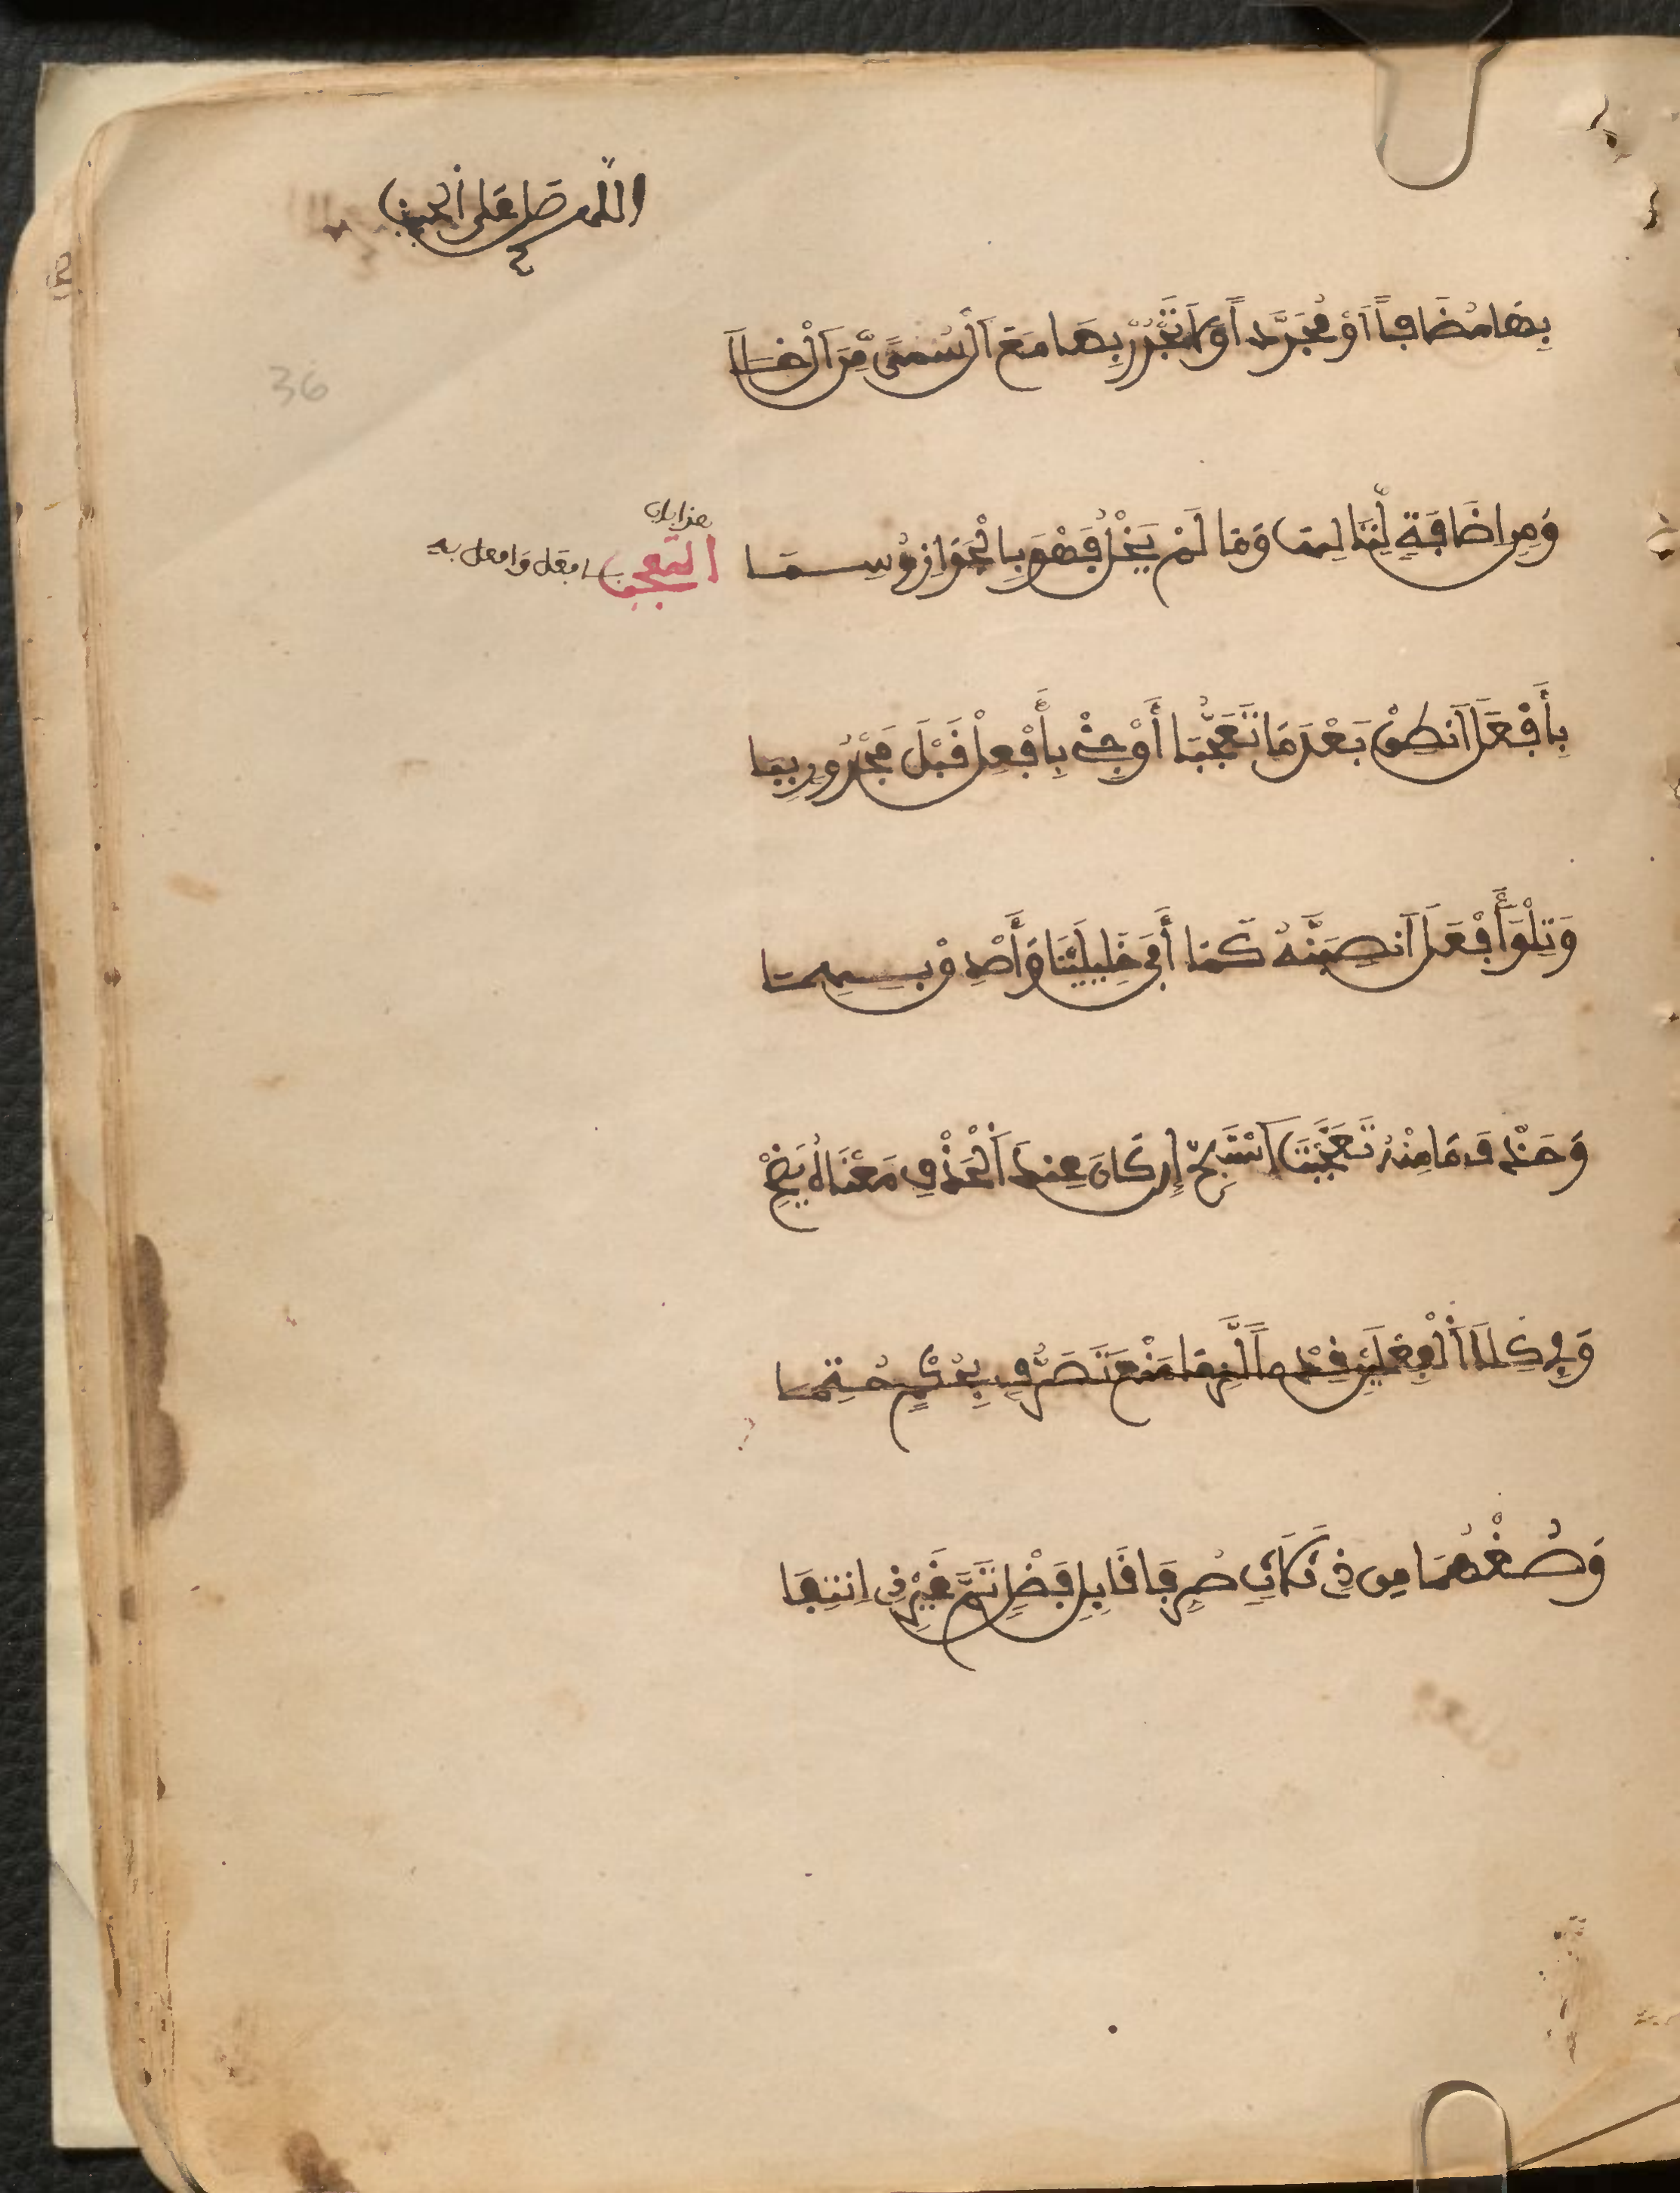 اللهم صل على الحبيب
36
بِهَا مُضَافاً اَوْ مُجَرَّداً وَلَا تَجْرُرْ بِهَا مَعَ اَلْ سُمًى مِّنَ اَلْ خَلَا
وَمِنِ اِضَافَةٍ لِّتَالِيهَا وَمَا لَمْ يَخْلُ فَهْوَ بِالْجَوَازِ وُسِمَا
هذا باب
التعجب بافعل وافعل به
بِأَفْعَلَ اَنطِقْ بَعْدَ مَا تَعَجُّبَا أَوْ جِئْ بِأَفْعِلْ قَبْلَ مَجْرُورٍ بِبَا
وَتِلْوَ أَفْعَلَ اَنصِبَنَّهُ كَمَا أَوْفَى خَلِيلَيْنَا وَأَصْدِقْ بِهِمَا
وَحَذْفَ مَا مِنْهُ تَعَجَّبْتَ اَسْتَبِحْ إِن كَانَ عِندَ اَلْحَذْفِ مَعْنَاهُ يَضِحْ
وَفِي كِلَا اَلْفِعْلَيْنِ قِدْماً لَّزِمَا مَنْعُ تَصَرُّفٍ بِحُكْمٍ حُتِمَا
وَصُغْهُمَا مِن ذِي ثَلَاثٍ صُرِفَا قَابِلِ فَضْلٍ تَمَّ غَيْرِ ذِي اِنتِفَا